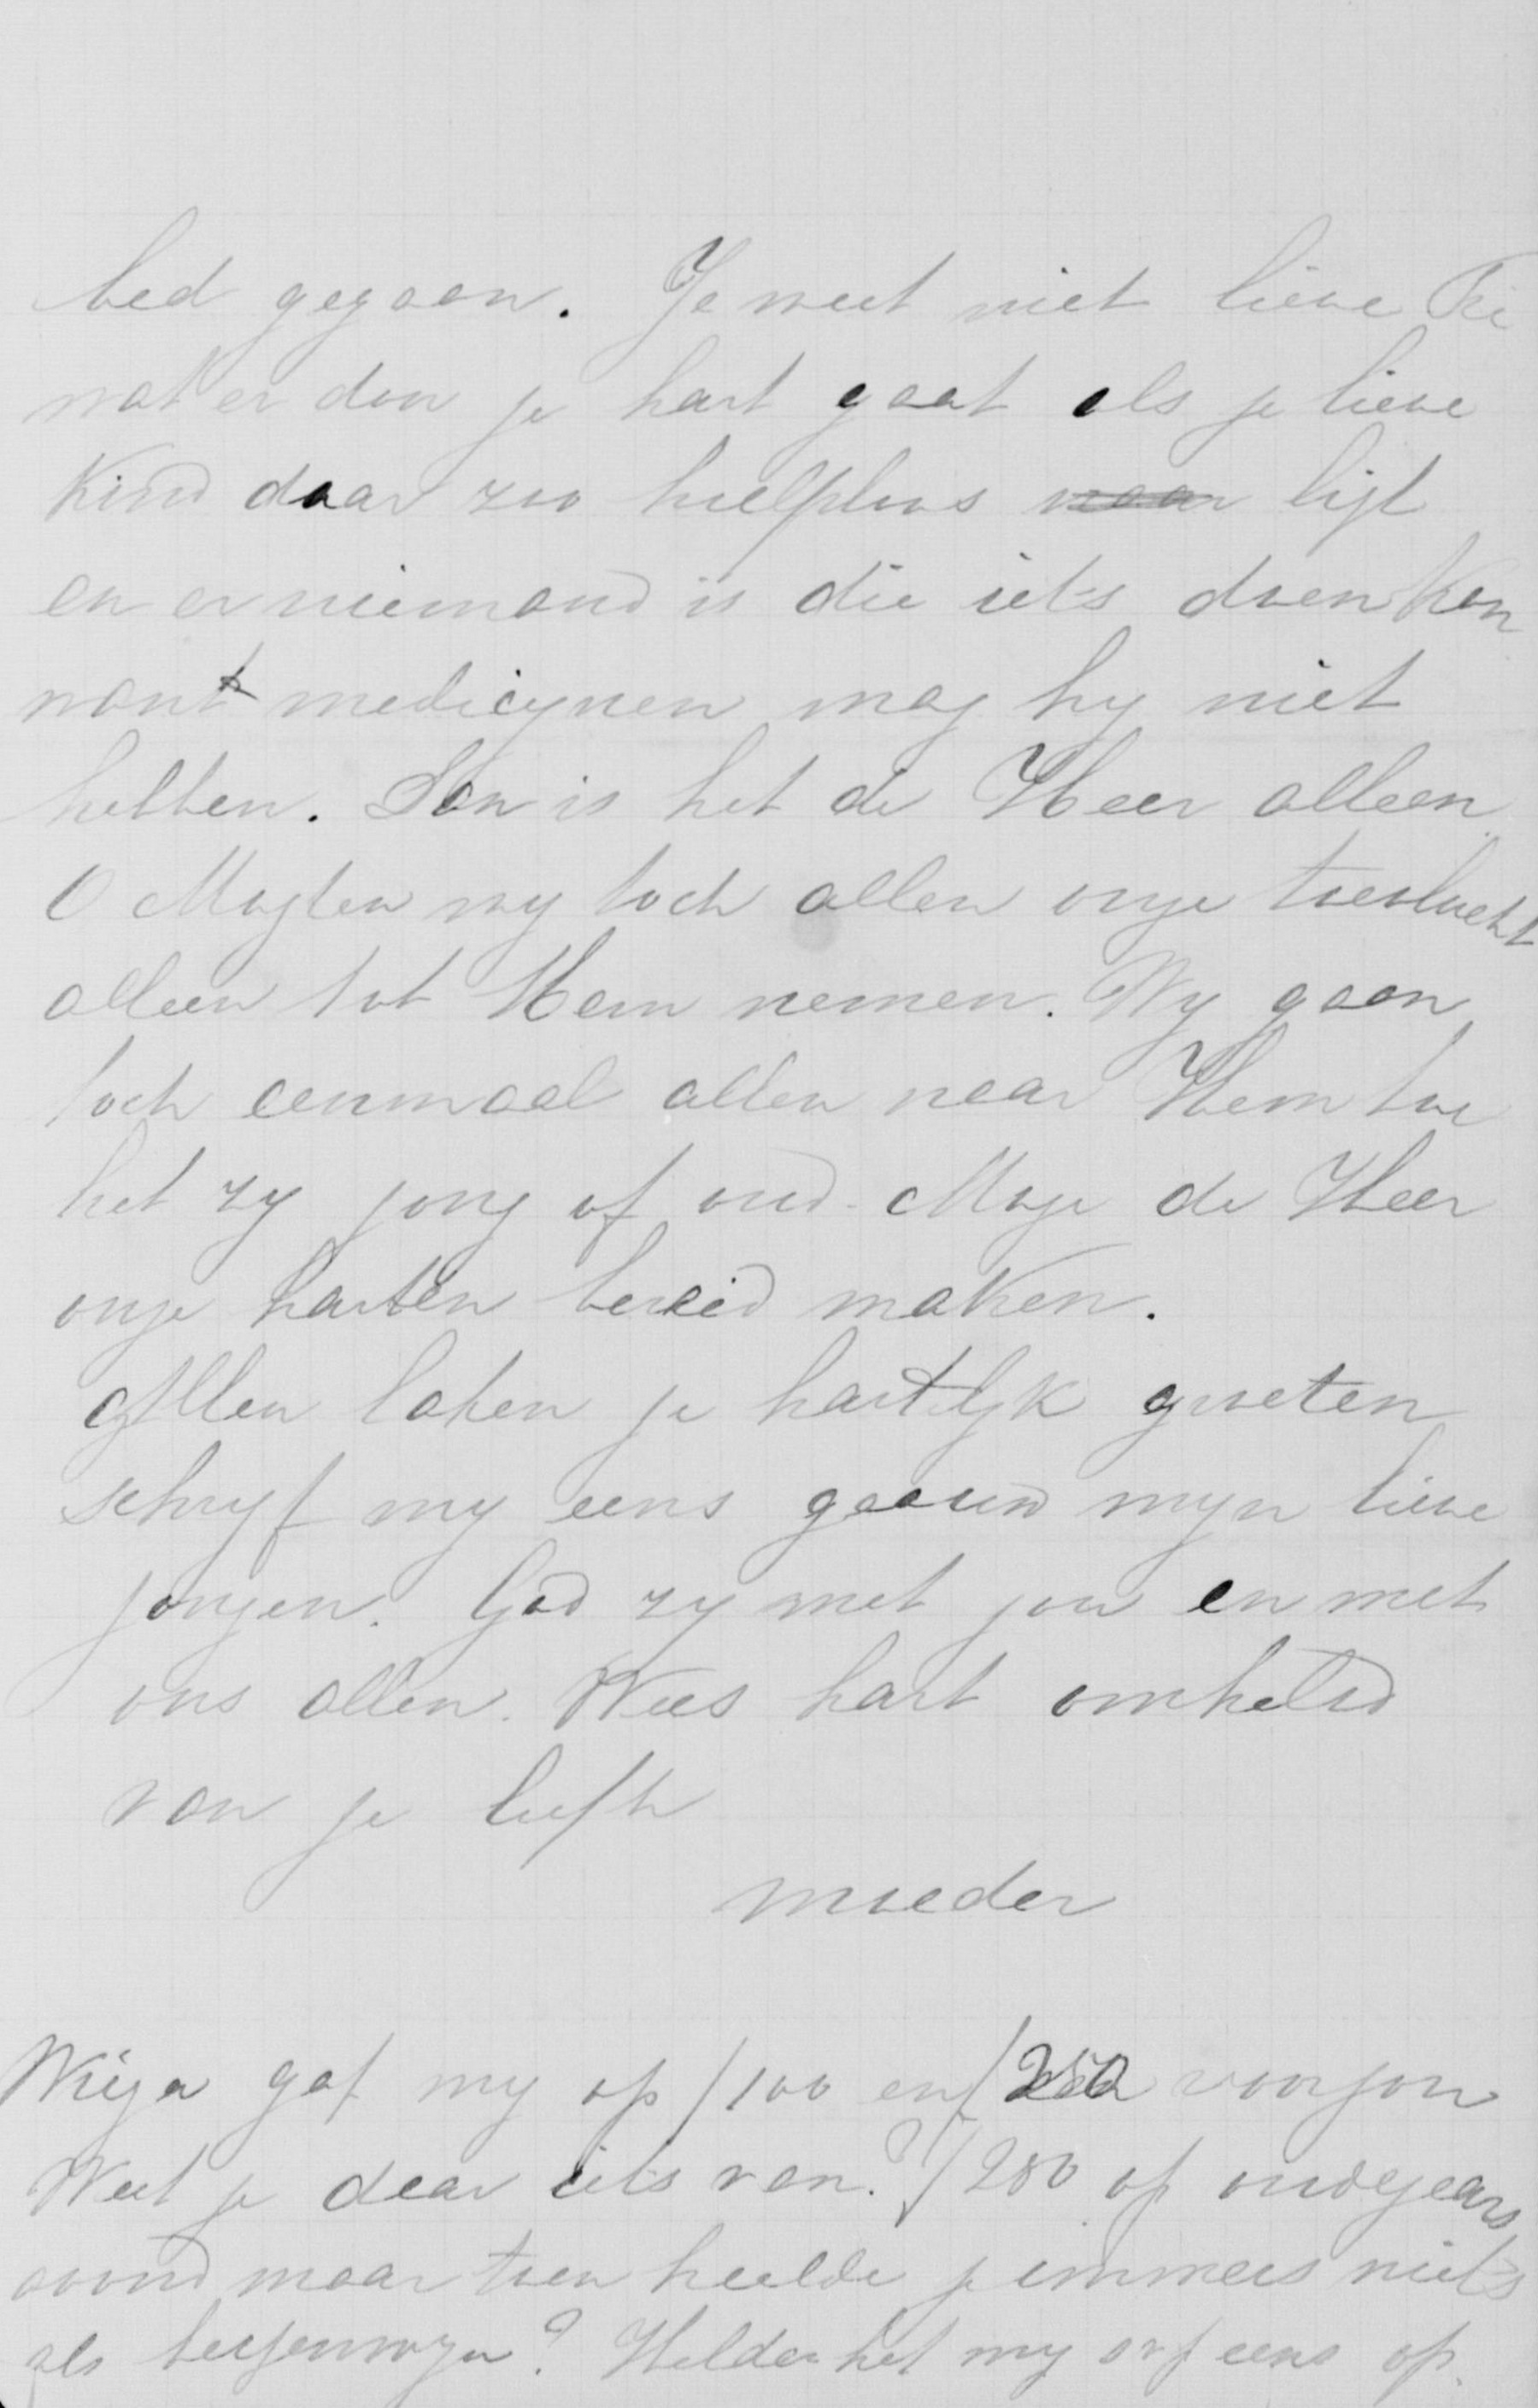 bed gegaan. Je weet niet lieve
wat er door je hart gaat als je lieve
kind daar zoo hulploos naar ligt
en er niemand is die iets doen kan
want medicynen mag hy niet
hebben. Dan is het de Heer alleen
O Mogten wy toch allen onze toevlucht
alleen tot Hem nemen. Wy gaan
toch eenmaal allen naar Hem toe
het zy jong of oud. Moge de Heer
onze harten bereid maken.
Allen laten je hartlyk groeten
schryf my eens gaauw myn lieve
jongen. God zy met jou en met
ons allen. Wees hart omhelsd
van je liefh
moeder
gaf my op f100 en f250 voor jou
Weet je daar iets van? f250 op oudejaars
avond maar toen hielde je immers niets
als bessenwyn? Helder het my eens op.